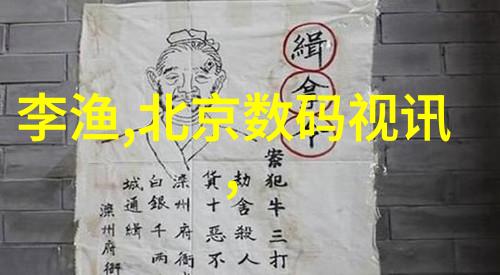 李渔,北京数码视讯
,
緝拿
案犯牛三打
劫舍殺人
貨十惡不
滦州府衙
白銀千两
城通緝
滦州府衙